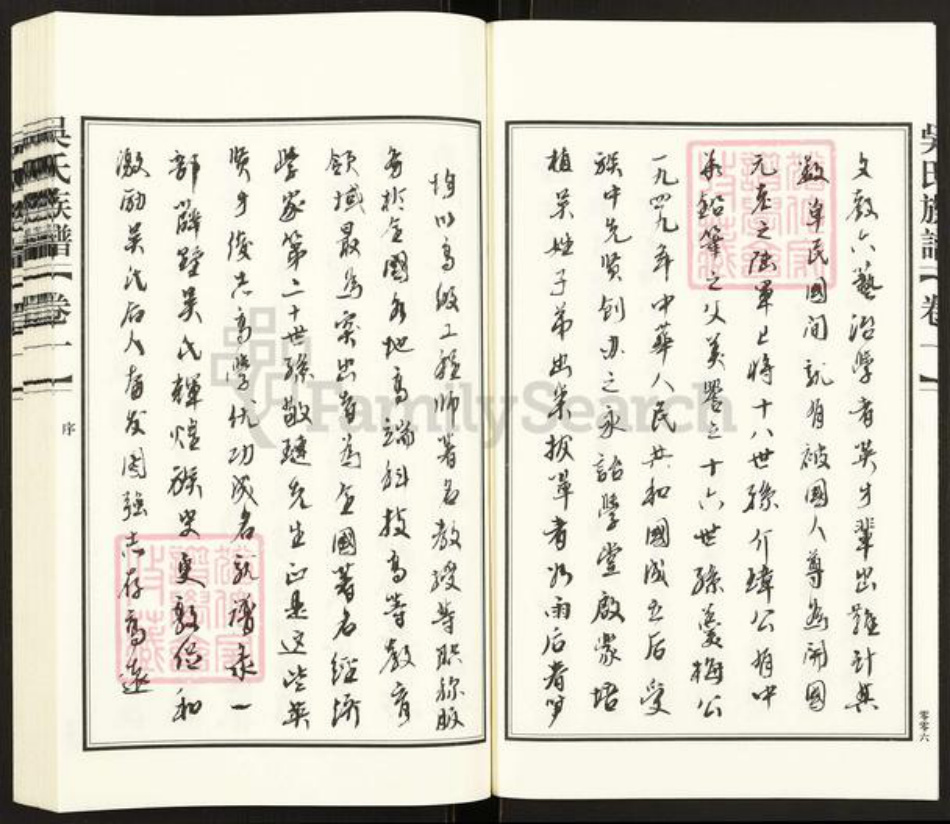 吳氏族譜【卷一】
文教六藝治學者英才輩出難計其
數單民國间就有被國人尊為開國
元老之陆軍上將十八世孫介璋公有中
華鉛筆之父美譽之十六世孫羹梅公
一九四九年中華人民共和國成立后受
族中先贤创办之永詒學堂啟蒙培
植吴姓子弟出类拔萃者如雨后春筍
零零六
均以高级工程师著名教授等职称服
务於全國各地高端科技高等教育
领域最為突出者為全國著名经济
學家第二十世孫敬璉先生正是这些英
贤才俊共高學优功成名就谱录一
部麟踵吴氏輝煌族史更敦促和
激励吴氏后人奋发圖强志存高遠
吳氏族譜【卷一】
序
FamilySearch